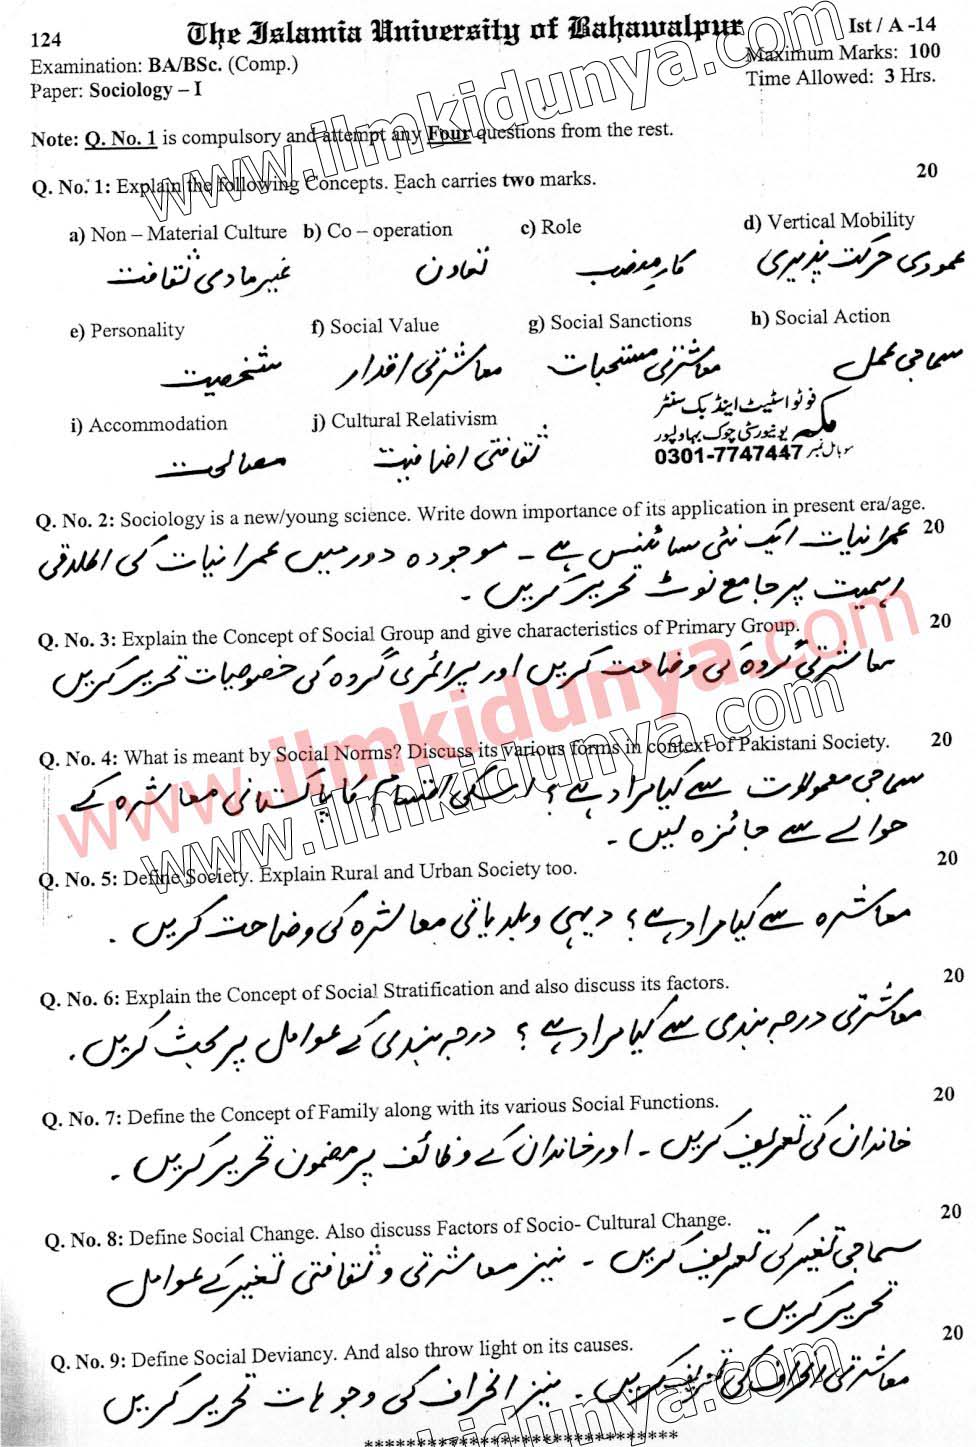 124
The Islamia University of Bahawalpur
Ist / A -14
Examination: BA/BSc. (Comp.)
Maximum Marks: 100
Paper: Sociology – I
Time Allowed: 3 Hrs.
www.ilmkidunya.com
Note: Q. No. 1 is compulsory and attempt any Four questions from the rest.
Q. No. 1: Explain the following Concepts. Each carries two marks. 20
a) Non – Material Culture b) Co – operation c) Role d) Vertical Mobility
غیر مادی ثقافت تعاون کار منصب عمودی حرکت پذیری
e) Personality f) Social Value g) Social Sanctions h) Social Action
شخصیت معاشرتی اقدار معاشرتی مستحبات سماجی عمل
i) Accommodation j) Cultural Relativism
مصالحت ثقافتی اضافیت
مکہ فوٹو اسٹیٹ اینڈ بک سنٹر
یونیورسٹی چوک بہاولپور
موبائل نمبر 0301-7747447
Q. No. 2: Sociology is a new/young science. Write down importance of its application in present era/age. 20
عمرانیات ایک نئی سائنس ہے ۔ موجودہ دور میں عمرانیات کی اطلاقی
اہمیت پر جامع نوٹ تحریر کریں ۔
Q. No. 3: Explain the Concept of Social Group and give characteristics of Primary Group. 20
معاشرتی گروہ کی وضاحت کریں اور پرائمری گروہ کی خصوصیات تحریر کریں
www.ilmkidunya.com
Q. No. 4: What is meant by Social Norms? Discuss its various forms in context of Pakistani Society. 20
سماجی معمولات سے کیا مراد ہے ؟ اسکی اقسام کا پاکستانی معاشرہ کے
حوالے سے جائزہ لیں ۔
www.ilmkidunya.com
Q. No. 5: Define Society. Explain Rural and Urban Society too. 20
معاشرہ سے کیا مراد ہے ؟ دیہی و بلدیاتی معاشرہ کی وضاحت کریں ۔
Q. No. 6: Explain the Concept of Social Stratification and also discuss its factors. 20
معاشرتی درجہ بندی سے کیا مراد ہے ؟ درجہ بندی کے عوامل پر بحث کریں ۔
Q. No. 7: Define the Concept of Family along with its various Social Functions. 20
خاندان کی تعریف کریں ۔ اور خاندان کے وظائف پر مضمون تحریر کریں ۔
Q. No. 8: Define Social Change. Also discuss Factors of Socio- Cultural Change. 20
سماجی تغیر کی تعریف کریں ۔ نیز معاشرتی و ثقافتی تغیر کے عوامل
تحریر کریں ۔
Q. No. 9: Define Social Deviancy. And also throw light on its causes. 20
معاشرتی انحراف کی تعریف کریں ۔ نیز انحراف کی وجوہات تحریر کریں
kidunya.com
******************************